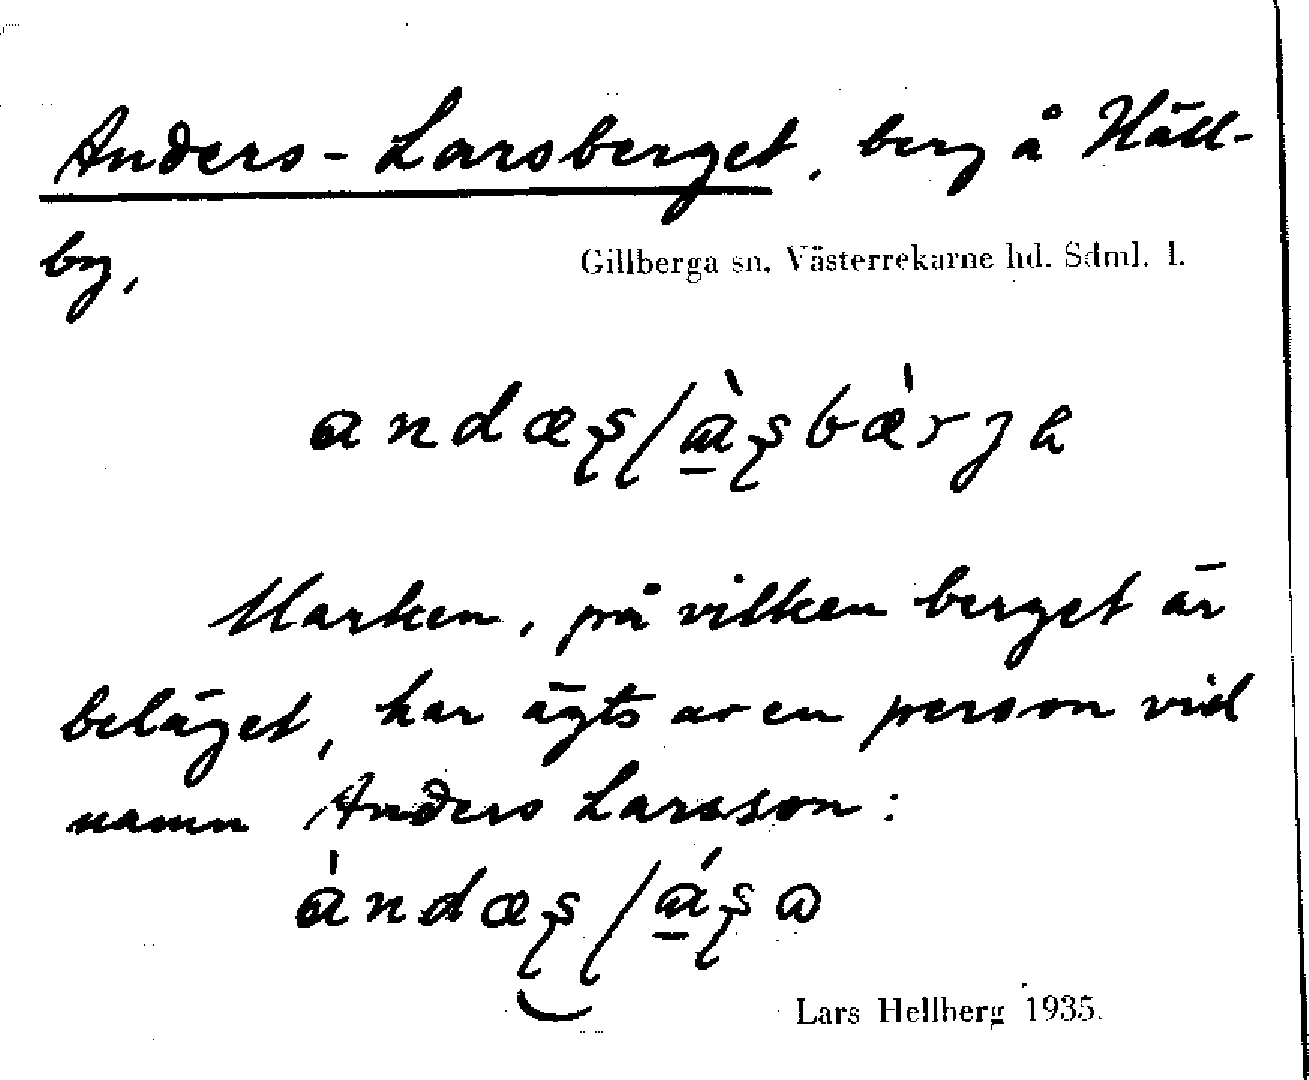 Anders-Larsberget, berg å Häll-
by,
Gillberga sn. Västerrekarne hd. Sdml. l.
Marken, på vilken berget är
beläget, har ägts av en person vid
namn Anders Larsson:
Lars Hellberg 1935.